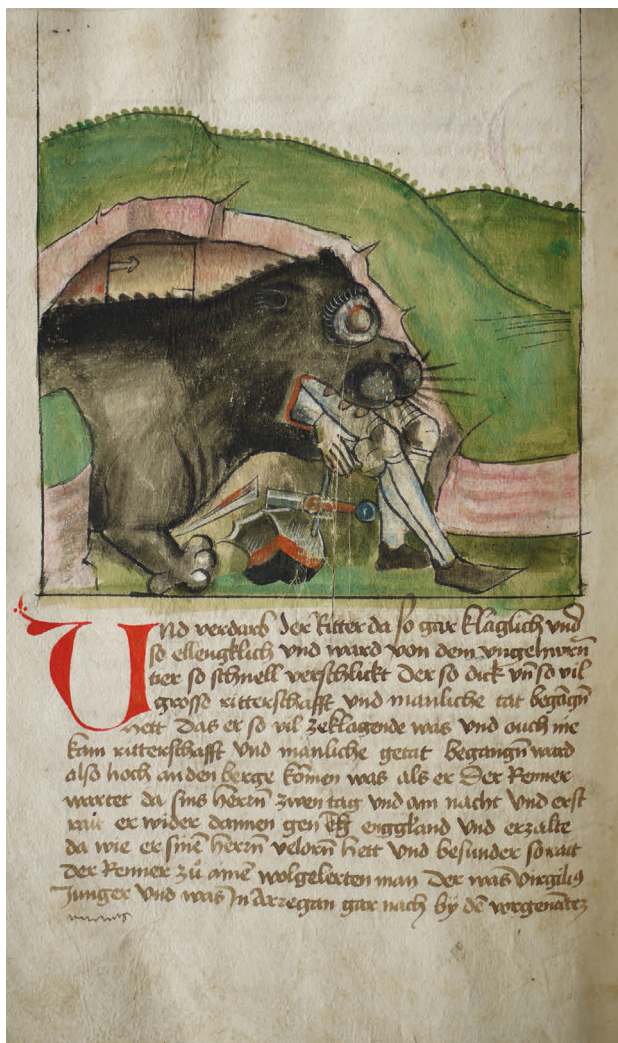 Und verdarb der Ritter da so gar kläglich und
so ellengklich und ward von dem ungehwren
tier so schnell verschlickt Der so dick vñ so vil
grosse ritterschafft und manliche tat begāgñ
hett Das er so vil zeklagende was und ouch nie
kain ritterschafft und mānliche getat begangñ ward
also hoch an den berge komen was als er Der Renner
wartet da sins herrñ zwen tag und ain nacht und erst
rait er wider dannen gen enggland und erzalte
da wie er sinē herrñ verlorñ hett und besunder so rait
der Renner zů ainē wolgelerten man Der was virgilius
Junger und was In Arregan gar nach by dē vorgenātē